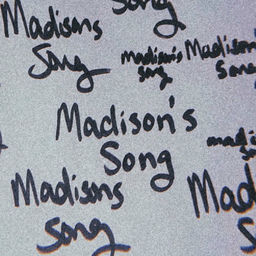 Song
Madisons
Song
madison's
song
Madison
Song
Madison's
Song
madi
Madisons
song
Mad
S